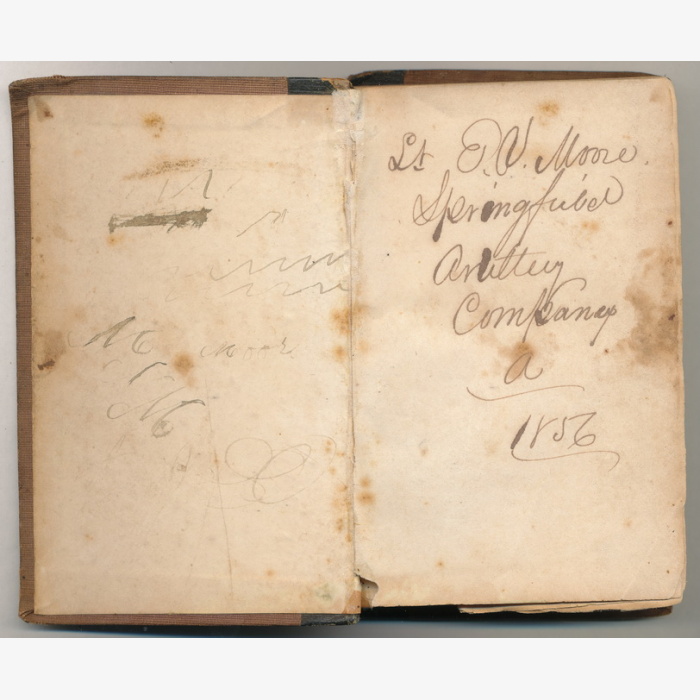 M Moore
M
Lt. T. V. Moore.
Springfield
Artillery
Company
A
1856